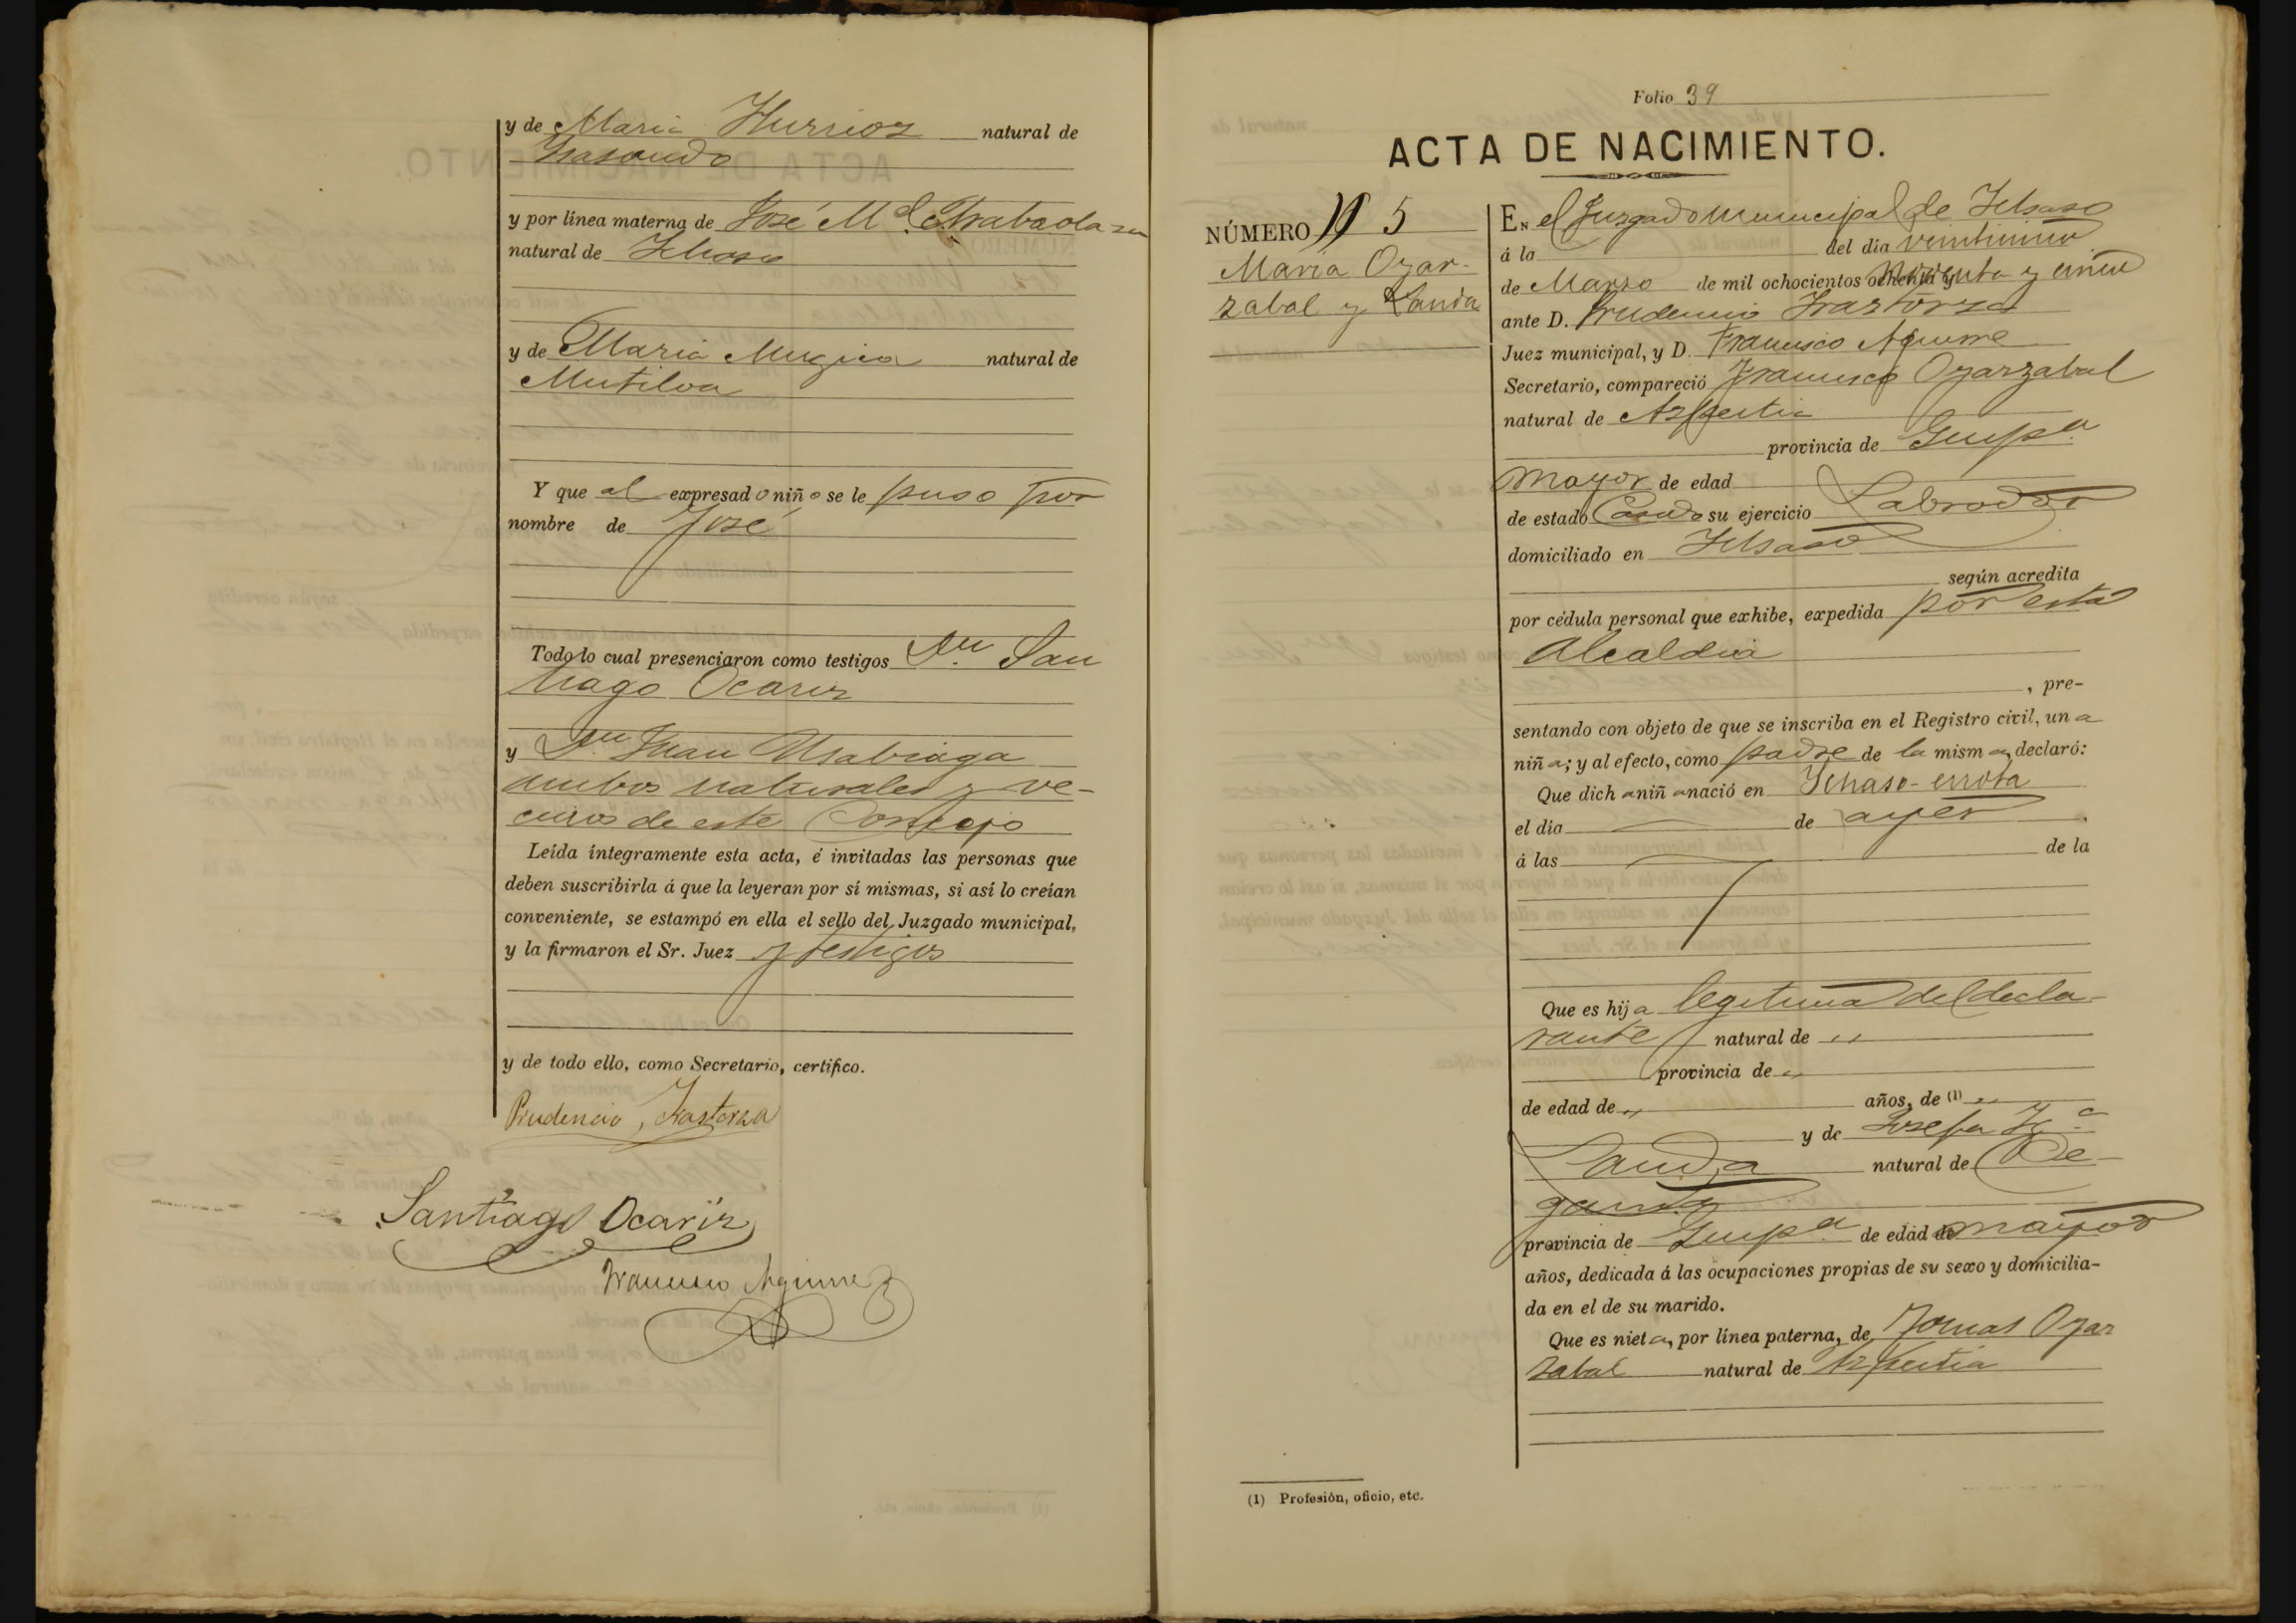 y de Maria Iturrioz natural de
Ysasondo
y por línea materna de José Mª Etrabaolaza
natural de Ichaso
y de Maria Mugica natural de
Mutiloa
Y que al expresado niño se le puso por
nombre de José
Todo lo cual presenciaron como testigos Dn. San
tiago Ocariz
y Dn Juan Usabiaga
ambos naturales y ve-
cinos de este Concejo
Leída íntegramente esta acta, é invitadas las personas que
deben suscribirla á que la leyeran por sí mismas, si así lo creían
conveniente, se estampó en ella el sello del Juzgado municipal,
y la firmaron el Sr. Juez y testigos
y de todo ello, como Secretario, certifico.
Prudencio Irastorza
Santiago Ocariz
Francisco Aguirre
Folio 39
ACTA DE NACIMIENTO.
NÚMERO 5
Maria Oyar-
zabal y Landa
En el Juzgado municipal de Ichaso
á la del dia veinticinco
de Marzo de mil ochocientos noventa y cinco
ante D. Prudencio Irastorza
Juez municipal, y D. Francisco Aguirre
Secretario, compareció Francisco Oyarzabal
natural de Azpeitia
provincia de Guipª
mayor de edad
de estado Casado su ejercicio Labrador
domiciliado en Ichaso
según acredita
por cédula personal que exhibe, expedida por esta
Alcaldia
, pre-
sentando con objeto de que se inscriba en el Registro civil, una
niña; y al efecto, como padre de la misma, declaró:
Que dicha niña nació en Ichaso-errota
el día de ayer
á las de la
Que es hija legitima del decla-
rante natural de ,,
provincia de ,,
de edad de ,, años, de (1) ,,
y de Josefa Yª
Landa natural de Ce-
garra
provincia de Guipª de edad de mayor
años, dedicada á las ocupaciones propias de su sexo y domicilia-
da en el de su marido.
Que es nieta, por línea paterna, de Tomas Oyar
zabal natural de Azpeitia
(1) Profesión, oficio, etc.